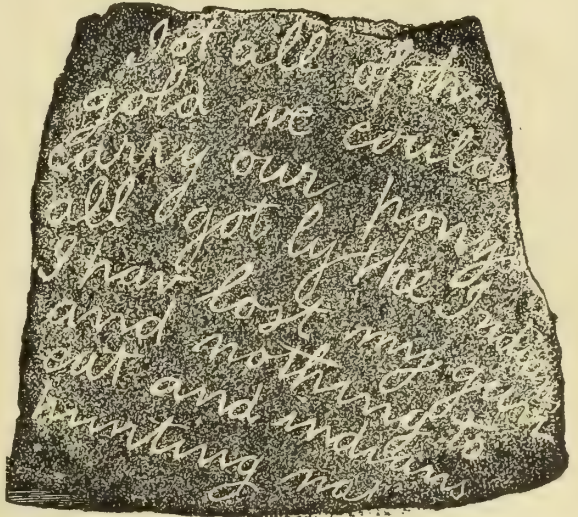 Got all of the
gold we could
carry our ponys
all got by the Indians
I hav lost my gun
and nothing to
eat and indians
hunting me